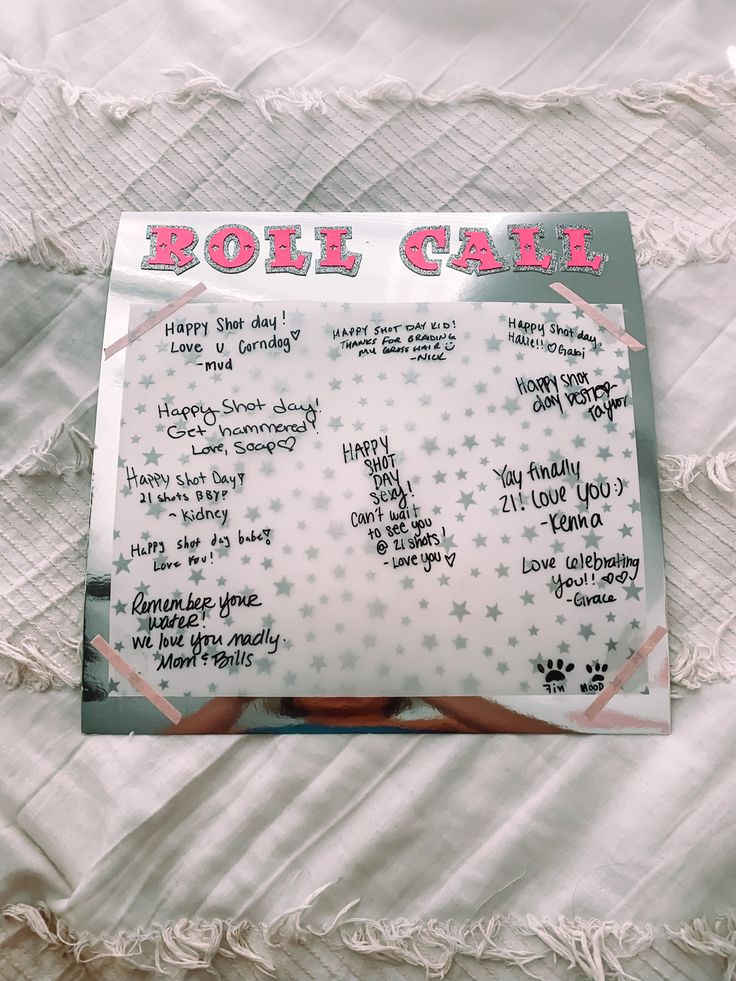 ROLL CALL
Happy Shot day!
Love u Corndog♡
-mud
HAPPY SHOT DAY KID!
THANKS FOR BRAIDING
MY GROSS HAIR ☺
-NICK
Happy Shot day,
Halie!! ♡Gabi
Happy shot
day bestie-
Taylor
Happy Shot day!
Get hammered!
Love, Soap♡
HAPPY
SHOT
DAY
SEXY!
Can't wait
to see you
@ 21 shots!
-Love you♡
Happy Shot Day!
21 shots BBY?
~ Kidney
Yay finally
21! Love you :)
-Kenna
Happy shot day babe!
Love you!
Love celebrating
you!! ♡♡
-Grace
Remember your
water!
we love you madly.
Mom & Bills
FIN MOOD